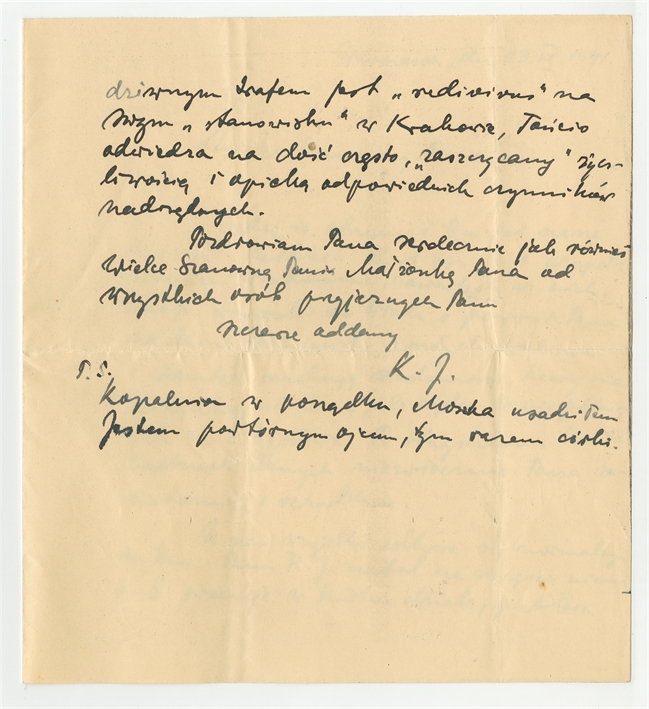 dziwnym trafem jest „redivivus" na
swym „stanowisku" w Krakowie,
odwiedza na dość często, „zaszczycany" życz-
liwością i opieką odpowiednich czynników
nadrzędnych.
Pozdrawiam Pana serdecznie jak również
Wielce Szanowną Panią Małżonkę Pana od
wszystkich osób przyjaznych Panu
szczerze oddany
K. J.
P.S.
Kopalnia w porządku,
Jestem powtórnym ojcem, tym razem córki.